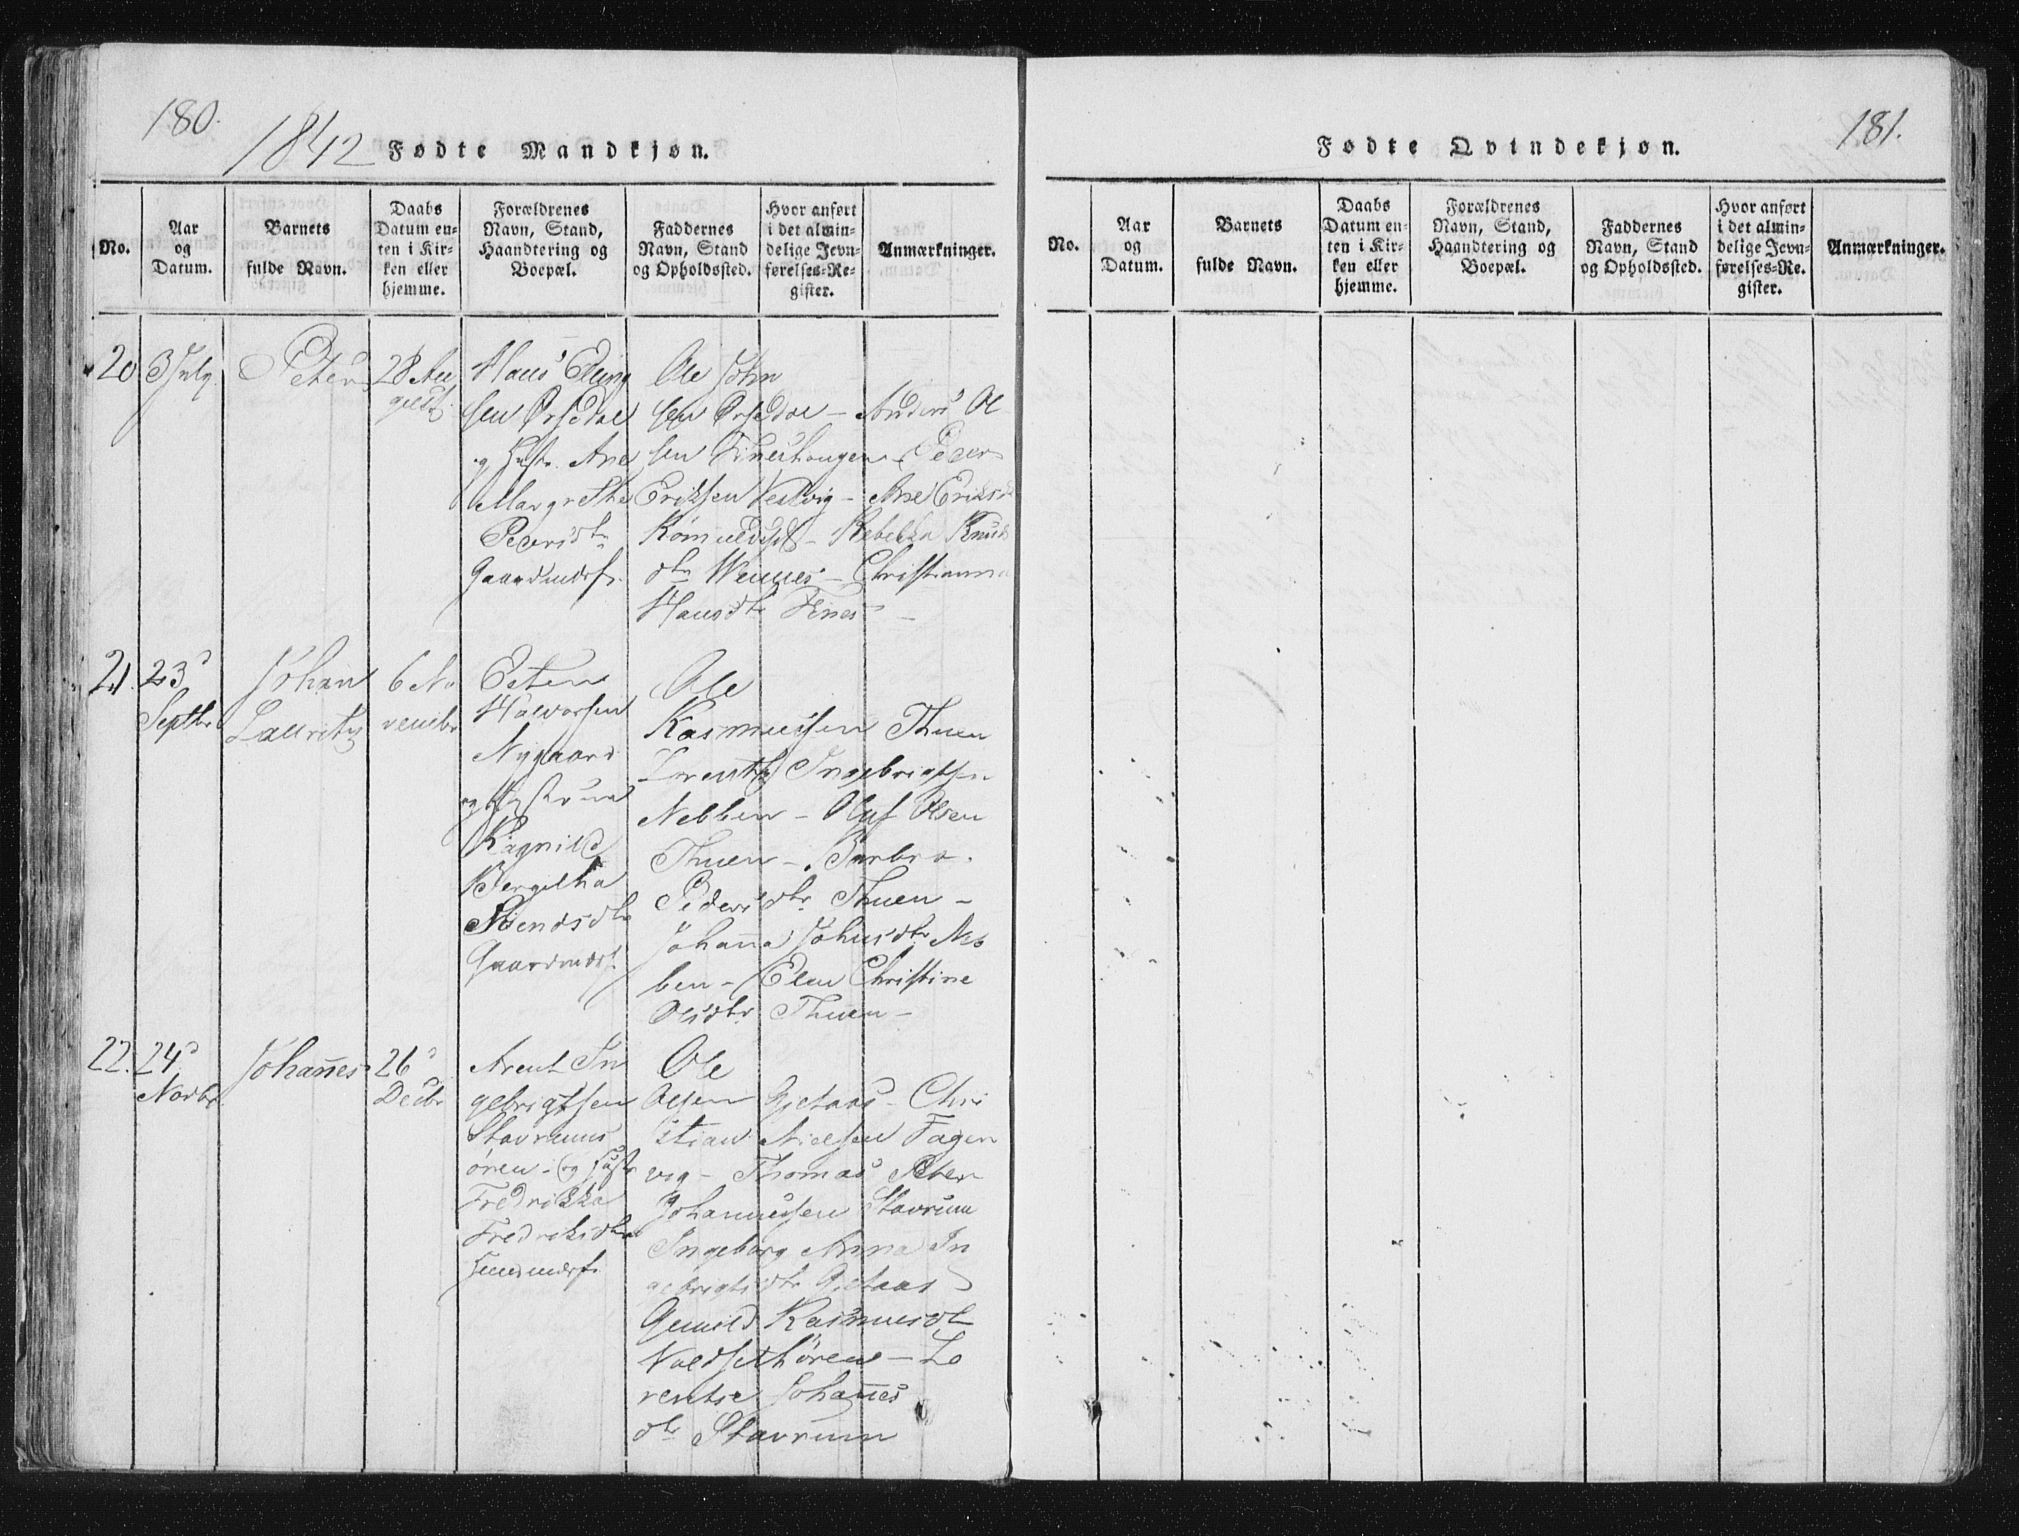 180.
1842 Fødte Mandkjøn.
No.
Aar
og
Datum.
Barnets
fulde Navn.
Daabs
Datum en-
ten i Kir-
ken eller
hjemme.
Forældrenes
Navn, Stand,
Haandtering og
Boepæl.
Faddernes
Navn, Stand
og Opholdssted.
Hvor anført
i det almin-
delige Jevn-
førelses-Re-
gister.
Anmærkninger.
20
3 July
Peter
28 Au
gust
Hans Elling
sen Ørsedal
og Hustr. Ane
Margrethe
Pedersdtr
Gaardmdsf.
Ole John
sen Ørsedal - Anders Ol
sen Fineshaugen - Peder
Eriksen Vestvig - Ane Eriks
- Rebekka Knuds
dtr - Christianna
Hansdtr Fines -
21.
23d
Septbr
Johan
Lauritz
6 No
vembr
Esten
Halvorsen
Nygaard
og Hustrue
Ragnild
Bergitha
dtr
Gaardmdsf.
Ole
Rasmussen Thuen
Lorentz Ingebrigtsen
Nebben - Oluf Olsen
Thuen - Barbro
Pedersdtr Thuen -
Johanna Johnsdtr Neb
ben - Elen Christine
Olsdtr Thuen -
22.
24d
Novbr
Johannes
26d
Decbr
Arent In
gebrigtsen
Stavrums
ören - og Hustr
Fredrikka
Fredriksdtr
Huusmdsf.
Ole
Olsen Gjetaas - Chri
stian Nielsen Fagen
vig - Thomas Peter
Johannessen Stavrum
Ingeborg Anna In
gebrigtsdtr Gjetaas
Gunild Rasmusdt
Voldsethören - Lo
rentse Johannes
dtr Stavrum
181.
Fødte Qvindekjøn.
No.
Aar
og
Datum.
Barnets
fulde Navn.
Daabs
Datum en-
ten i Kir-
ken eller
hjemme.
Forældrenes
Navn, Stand,
Haandtering og
Boepæl.
Faddernes
Navn, Stand
og Opholdssted.
Hvor anført
i det almin-
delige Jevn-
førelses-Re-
gister.
Anmærkninger.